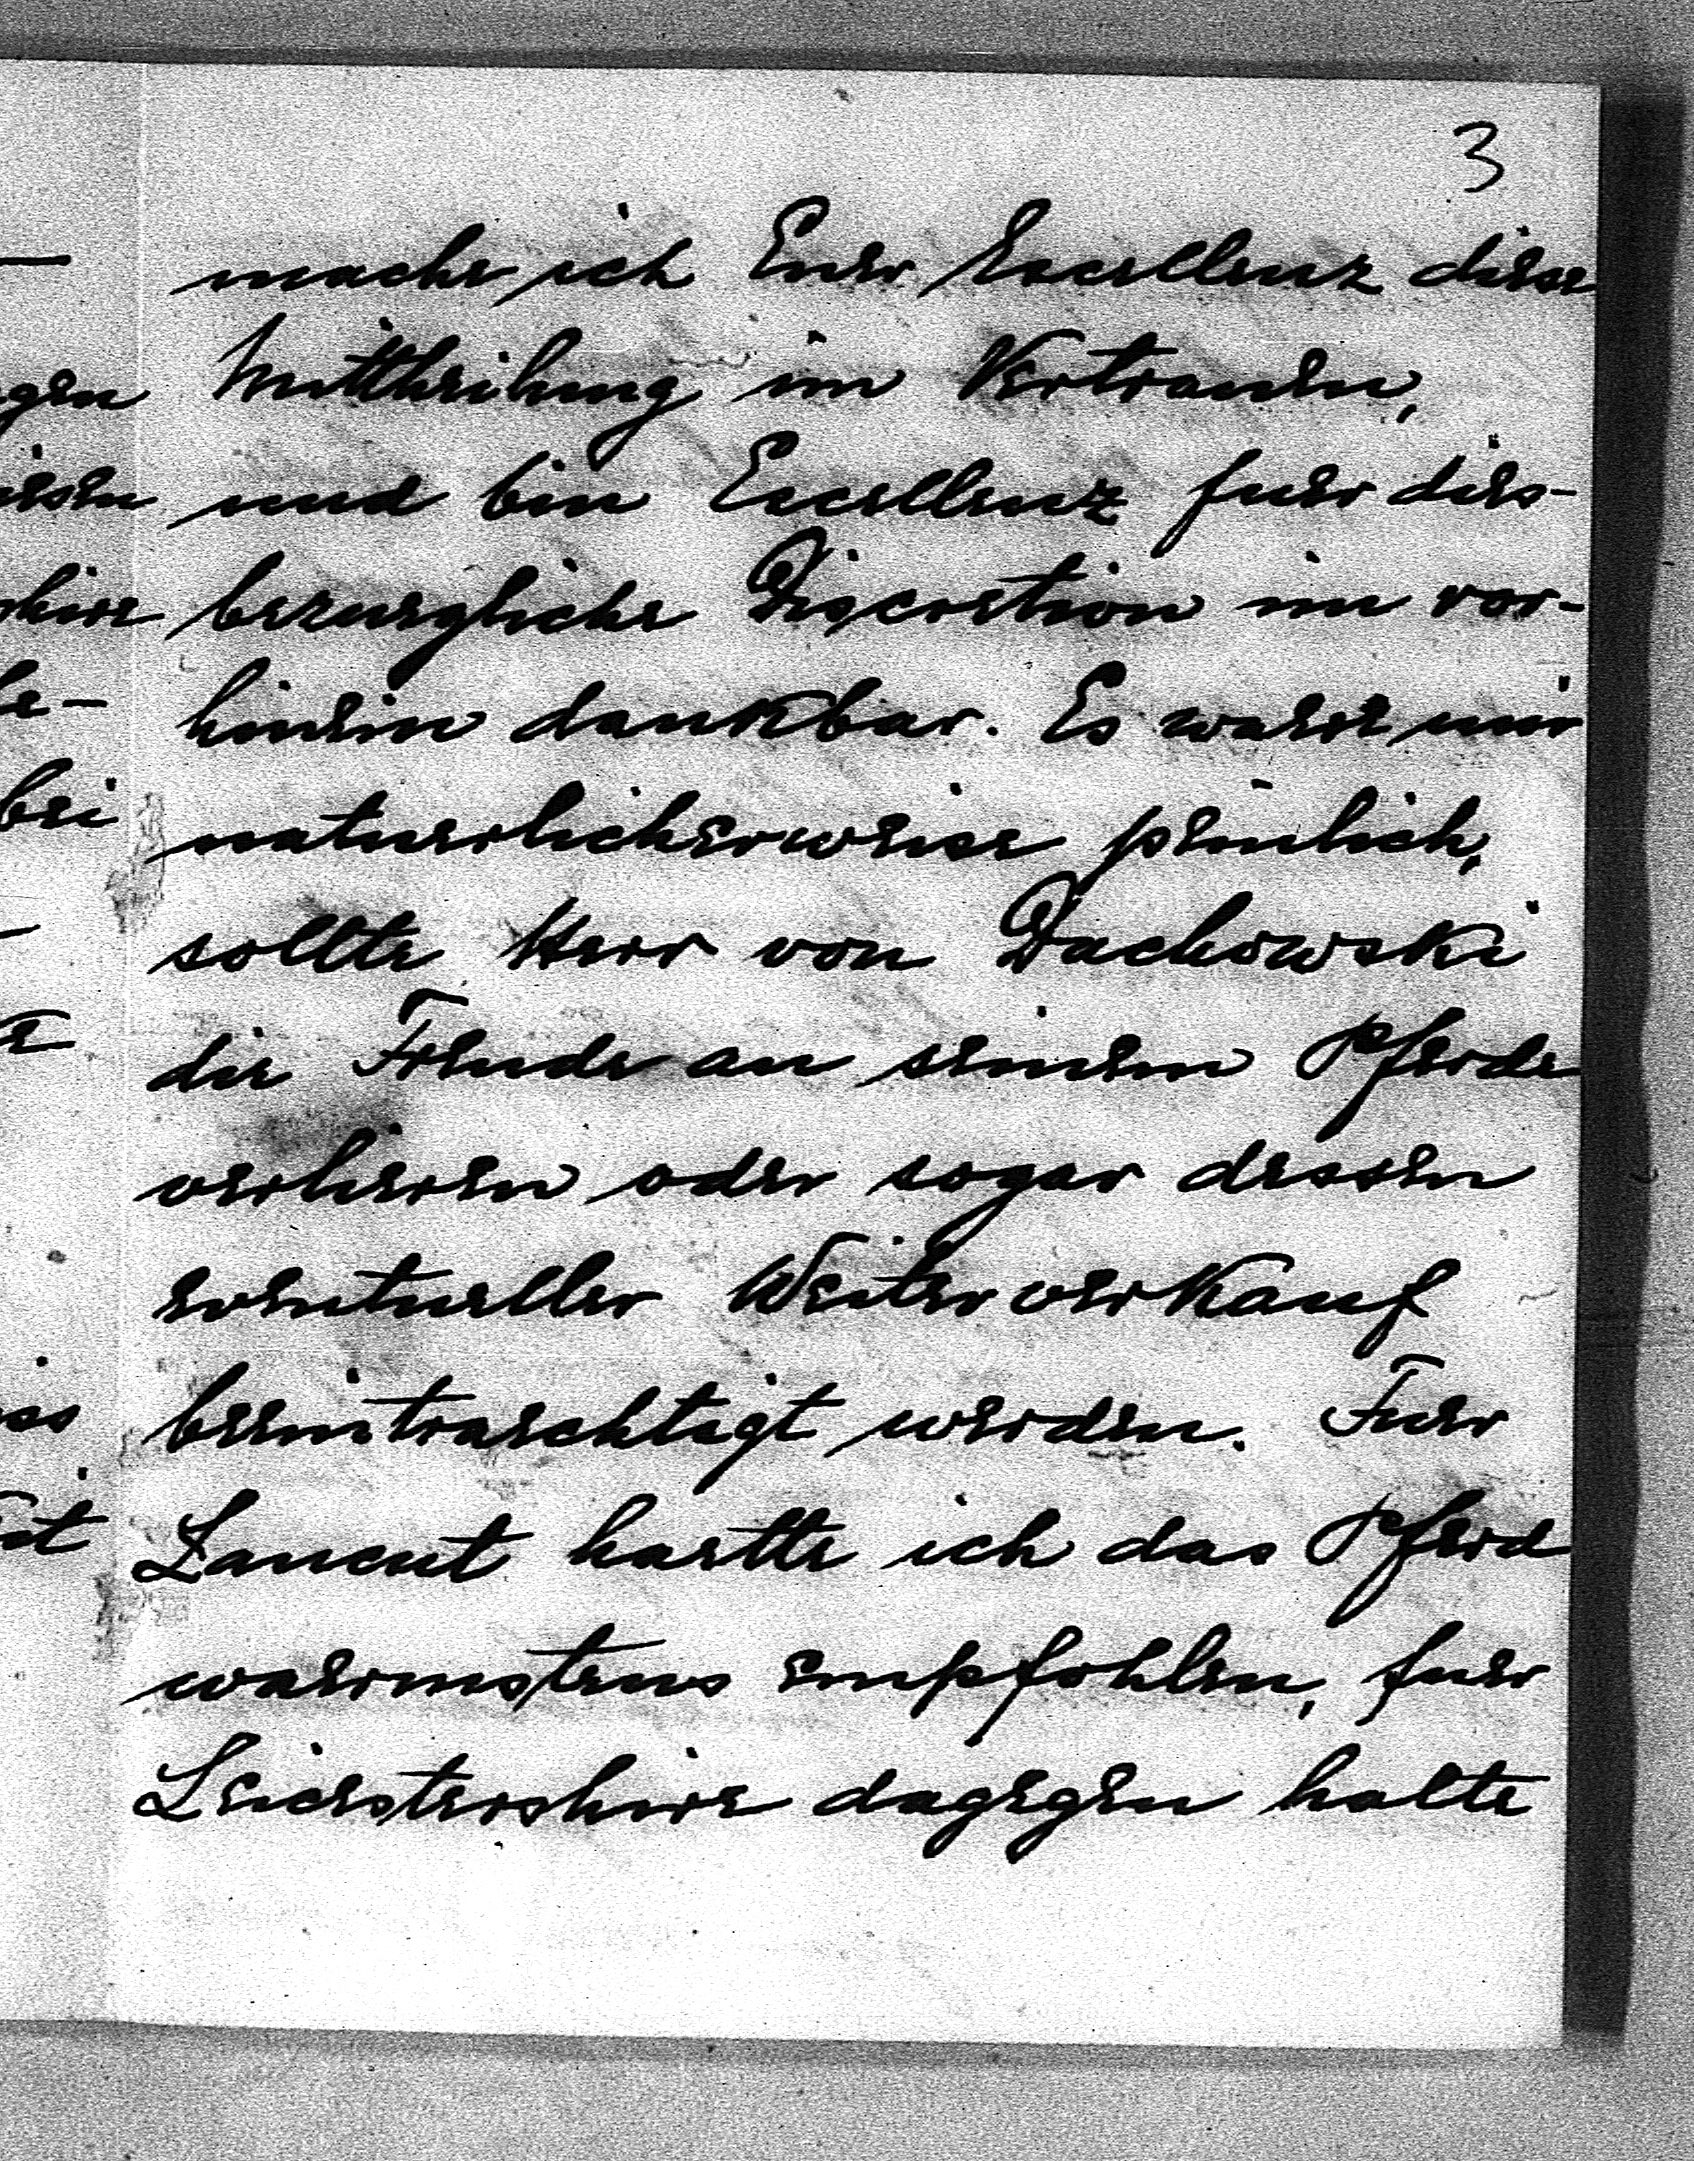 3
mache ich Euer Excellenz diese
Mittheilung im Vertrauen,
und bin Excellenz fuer dies-
bezuegliche Discretion im vor-
hinein dankbar. Es waere mir
natuerlicherweise peinlich,
sollte Herr von Dachowski
die Freude an seinem Pferde
verlieren oder sogar dessen
eventueller Weiterverkauf
beeintraechtigt werden. Fuer
Lancut haette ich das Pferd
waermstens empfohlen, fuer
Leicestershire dagegen halte